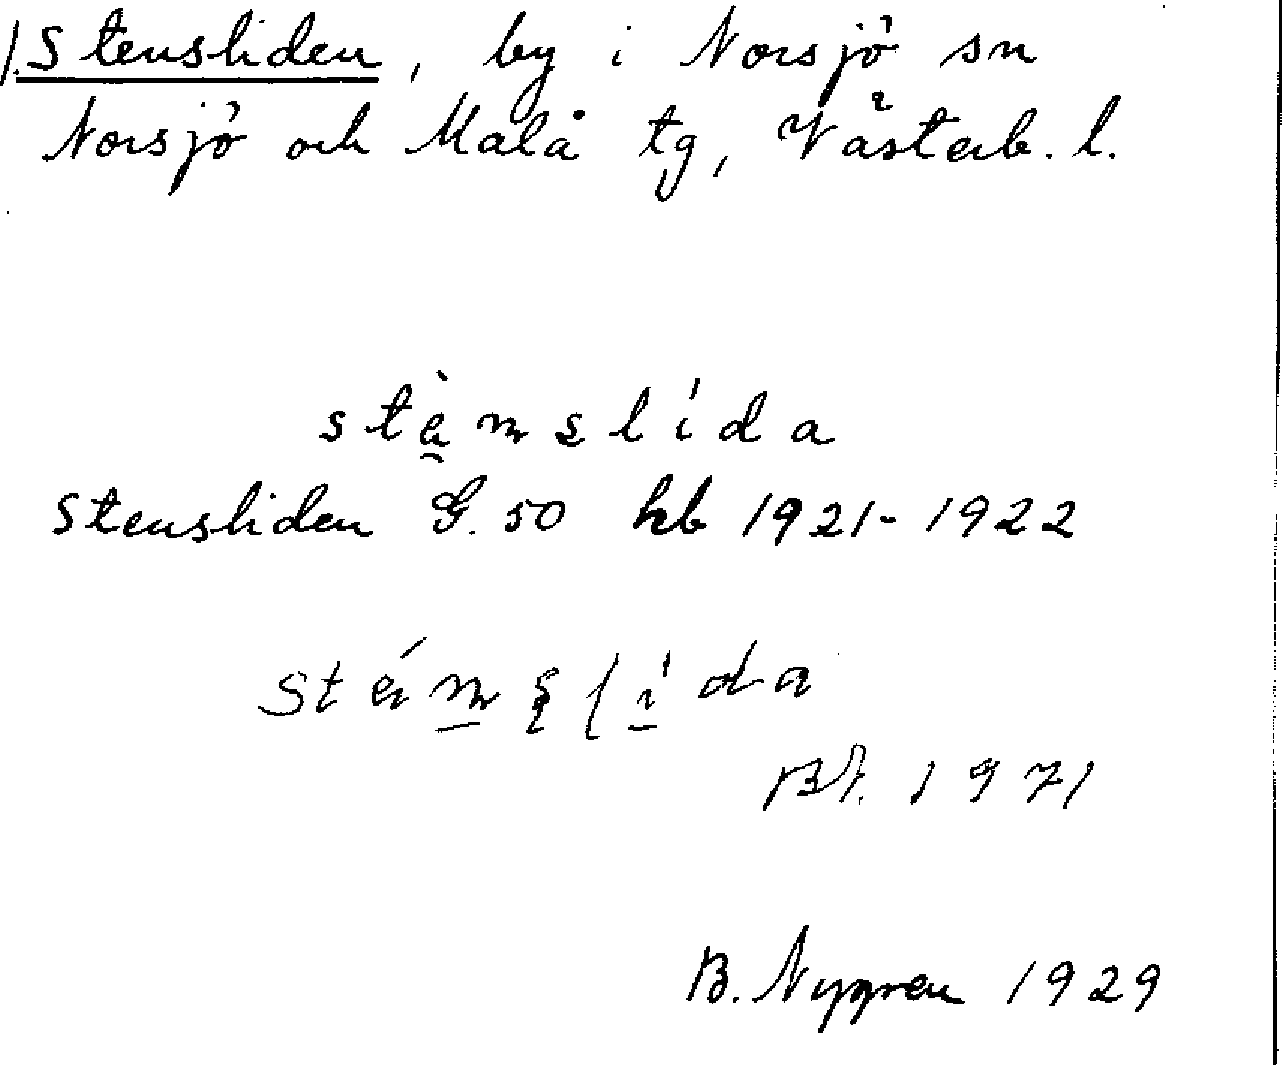 1. Stensliden, by i Norsjö sn
Norsjö och Malå tg, Västerb. l.
stèmslída
Stensliden G. 50 hb 1921-1922
stémslída
Bt. 1971
B. Nygren 1929